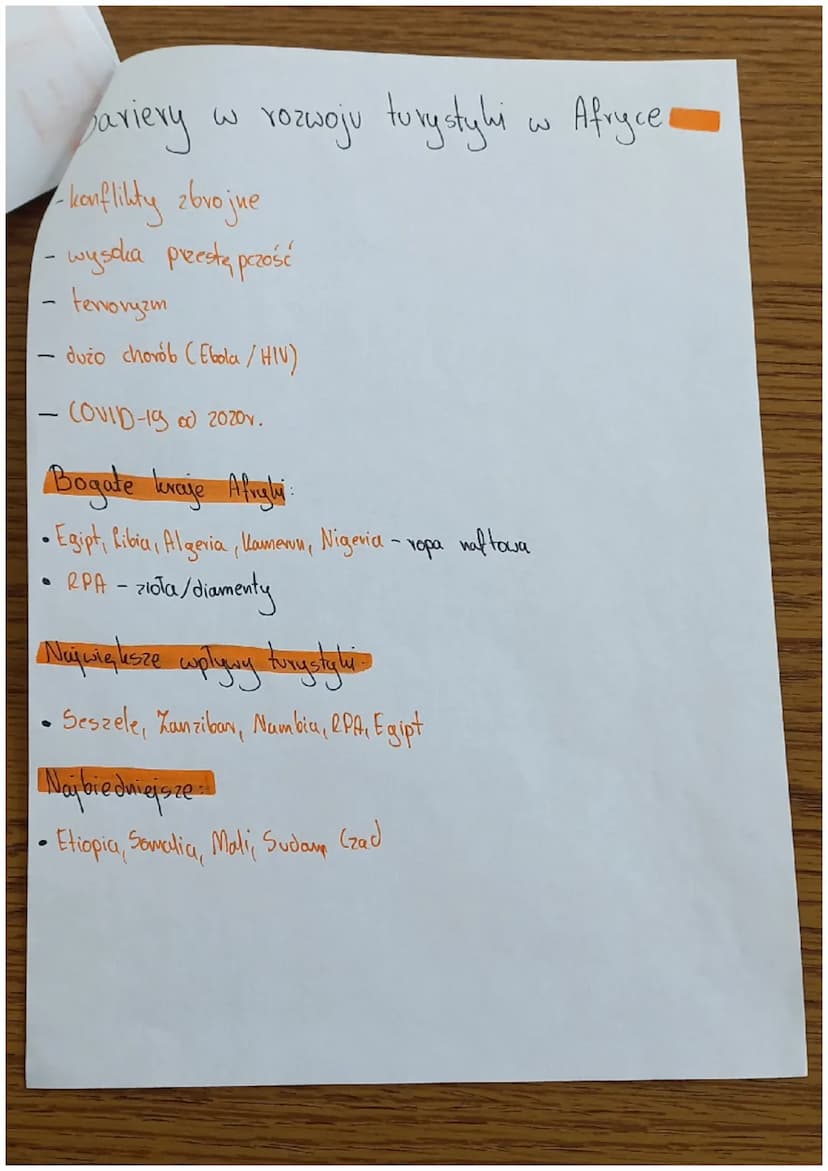 bariery w rozwoju turystyki w Afryce
- konflikty zbrojne
- wysoka przestępczość
- terroryzm
- dużo chorób (Ebola / HIV)
- COVID-19 od 2020r.
Bogate kraje Afryki:
• Egipt, Libia, Algeria, Kamerun, Nigeria - ropa naftowa
• RPA - złoża/diamenty
Największe wpływy turystyki:
• Seszele, Zanzibar, Nambia, RPA, Egipt
Najbiedniejsze:
• Etiopia, Somalia, Mali, Sudan, Czad